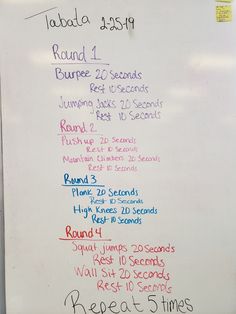 Tabata 2-25-19
Round 1
Burpee 20 Seconds
Rest 10 Seconds
Jumping Jacks 20 Seconds
Rest 10 Seconds
Round 2
Pushup 20 Seconds
Rest 10 Seconds
Mountain Climbers 20 Seconds
Rest 10 Seconds
Round 3
Plank 20 Seconds
Rest 10 Seconds
High Knees 20 Seconds
Rest 10 Seconds
Round 4
Squat jumps 20 Seconds
Rest 10 Seconds
Wall Sit 20 Seconds
Rest 10 Seconds
Repeat 5 times